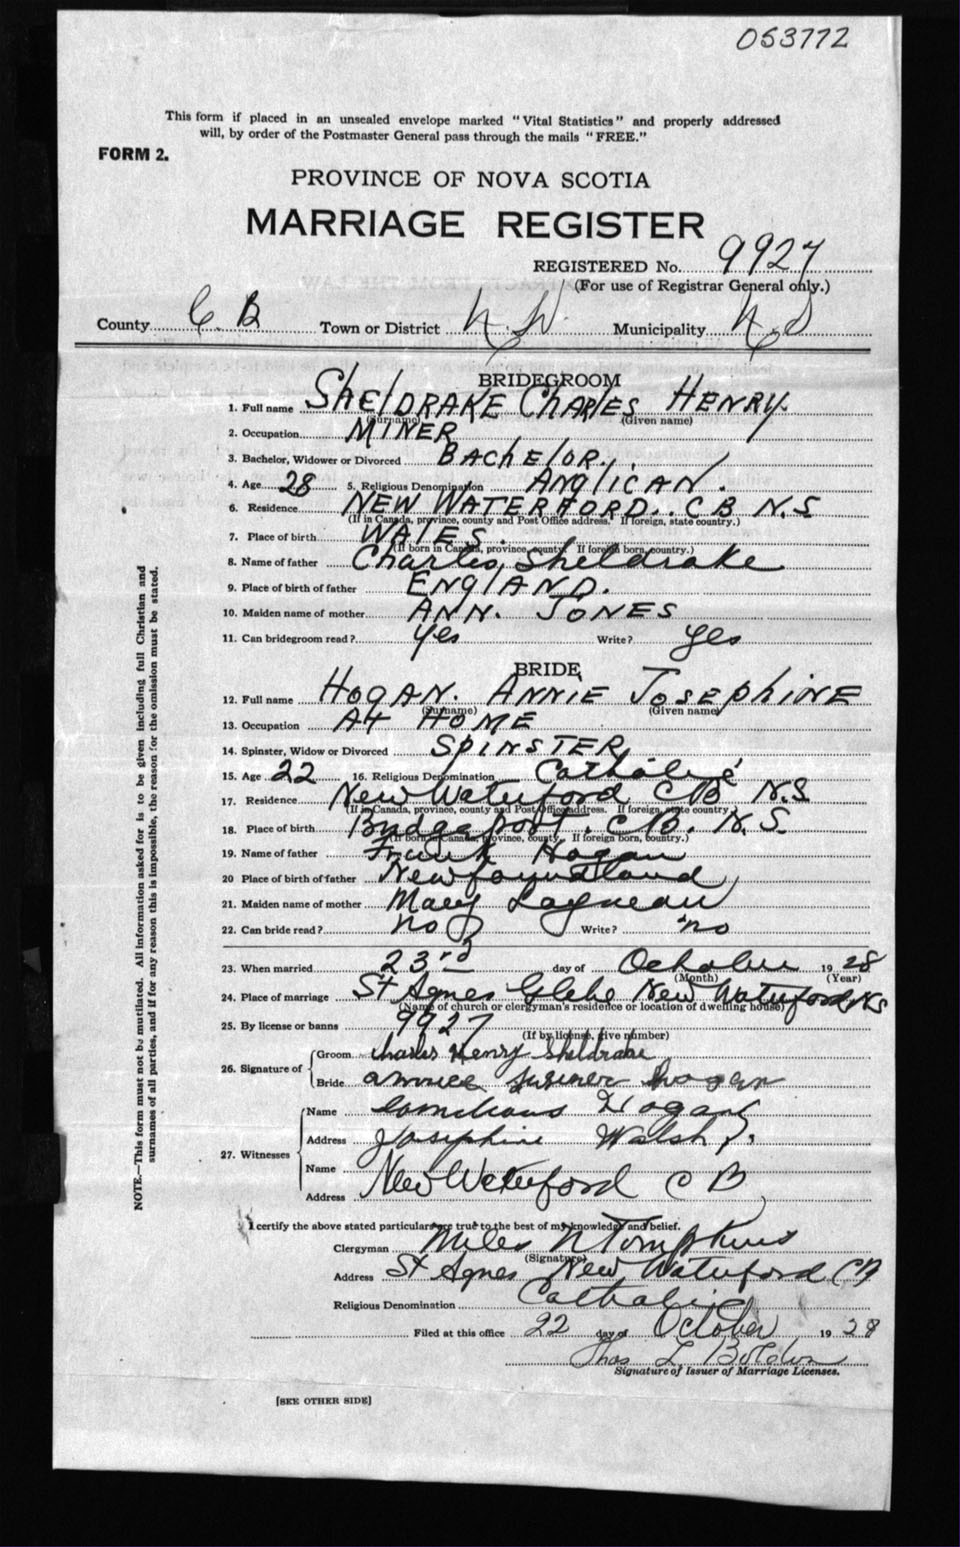 053772
This form if placed in an unsealed envelope marked "Vital Statistics" and properly addressed
will, by order of the Postmaster General pass through the mails "FREE."
FORM 2.
PROVINCE OF NOVA SCOTIA
MARRIAGE REGISTER
REGISTERED No. 9927
(For use of Registrar General only.)
County C. B Town or District N. W. Municipality N S
BRIDEGROOM
1. Full name SHElDRAKE CHARlES HENRY
(Surname) (Given name)
2. Occupation MINER
3. Bachelor, Widower or Divorced BAChElOR.
4. Age 28 5. Religious Denomination ANglICAN.
6. Residence NEW WATERFORD.. C B N.S
(If in Canada, province, county and Post Office address. If foreign, state country.)
7. Place of birth WAlES.
(If born in Canada, province, county. If foreign born, country.)
8. Name of father Charles Sheldrake
9. Place of birth of father ENglAND.
10. Maiden name of mother ANN. JONES
11. Can bridegroom read? Yes Write? Yes
BRIDE
12. Full name HOGAN. ANNIE JOSEPhINE
(Surname) (Given name)
13. Occupation At HOME
14. Spinster, Widow or Divorced SPINSTER
15. Age 22 16. Religious Denomination Catholic
17. Residence New Waterford C B N.S
(If in Canada, province, county and Post Office address. If foreign, state country)
18. Place of birth Bridgeport. C B. N.S.
(If born in Canada, province, county, If foreign born, country.)
19. Name of father Frank Hogan
20 Place of birth of father Newfoundland
21. Maiden name of mother Mary
22. Can bride read? no Write? no
23. When married 23rd day of October 19 28
(Month) (Year)
24. Place of marriage St Agnes Glebe New Waterford NS
(Name of church or clergyman's residence or location of dwelling house)
25. By license or banns 9927
(If by license, give number)
26. Signature of
Groom Charles Henry Sheldrake
Bride hogan
27. Witnesses
Name Hogan
Address Josephine Walsh
Name
Address New Waterford C B
I certify the above stated particulars are true to the best of my knowledge and belief.
Clergyman Miles N Tompkins
(Signature)
Address St Agnes New Waterford CB
Religious Denomination Catholic
Filed at this office 22 day of October 19 28
Thos L
Signature of Issuer of Marriage Licenses.
[SEE OTHER SIDE]
NOTE.—This form must not be mutilated. All information asked for is to be given including full Christian and
surnames of all parties, and if for any reason this is impossible, the reason for the omission must be stated.